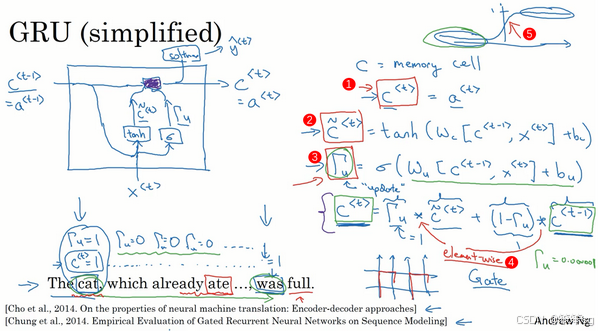 GRU (simplified)
softmax
ŷ<t>
c<t-1>
=a<t-1>
c̃<t>
Γu
tanh
σ
x<t>
c<t>
=a<t>
5
C = memory cell
1
c<t> = a<t>
2
c̃<t> = tanh(Wc[c<t-1>, x<t>] + bc)
3
Γu = σ(Wu[c<t-1>, x<t>] + bu)
"update"
c<t> = Γu * c̃<t> + (1-Γu) * c<t-1>
element-wise
4
Gate
Γu = 0.000001
Γu=1
c<t>=1
Γu=0 Γu=0 Γu=0 ......
The cat, which already ate ..., was full.
[Cho et al., 2014. On the properties of neural machine translation: Encoder-decoder approaches]
[Chung et al., 2014. Empirical Evaluation of Gated Recurrent Neural Networks on Sequence Modeling]
Andrew Ng